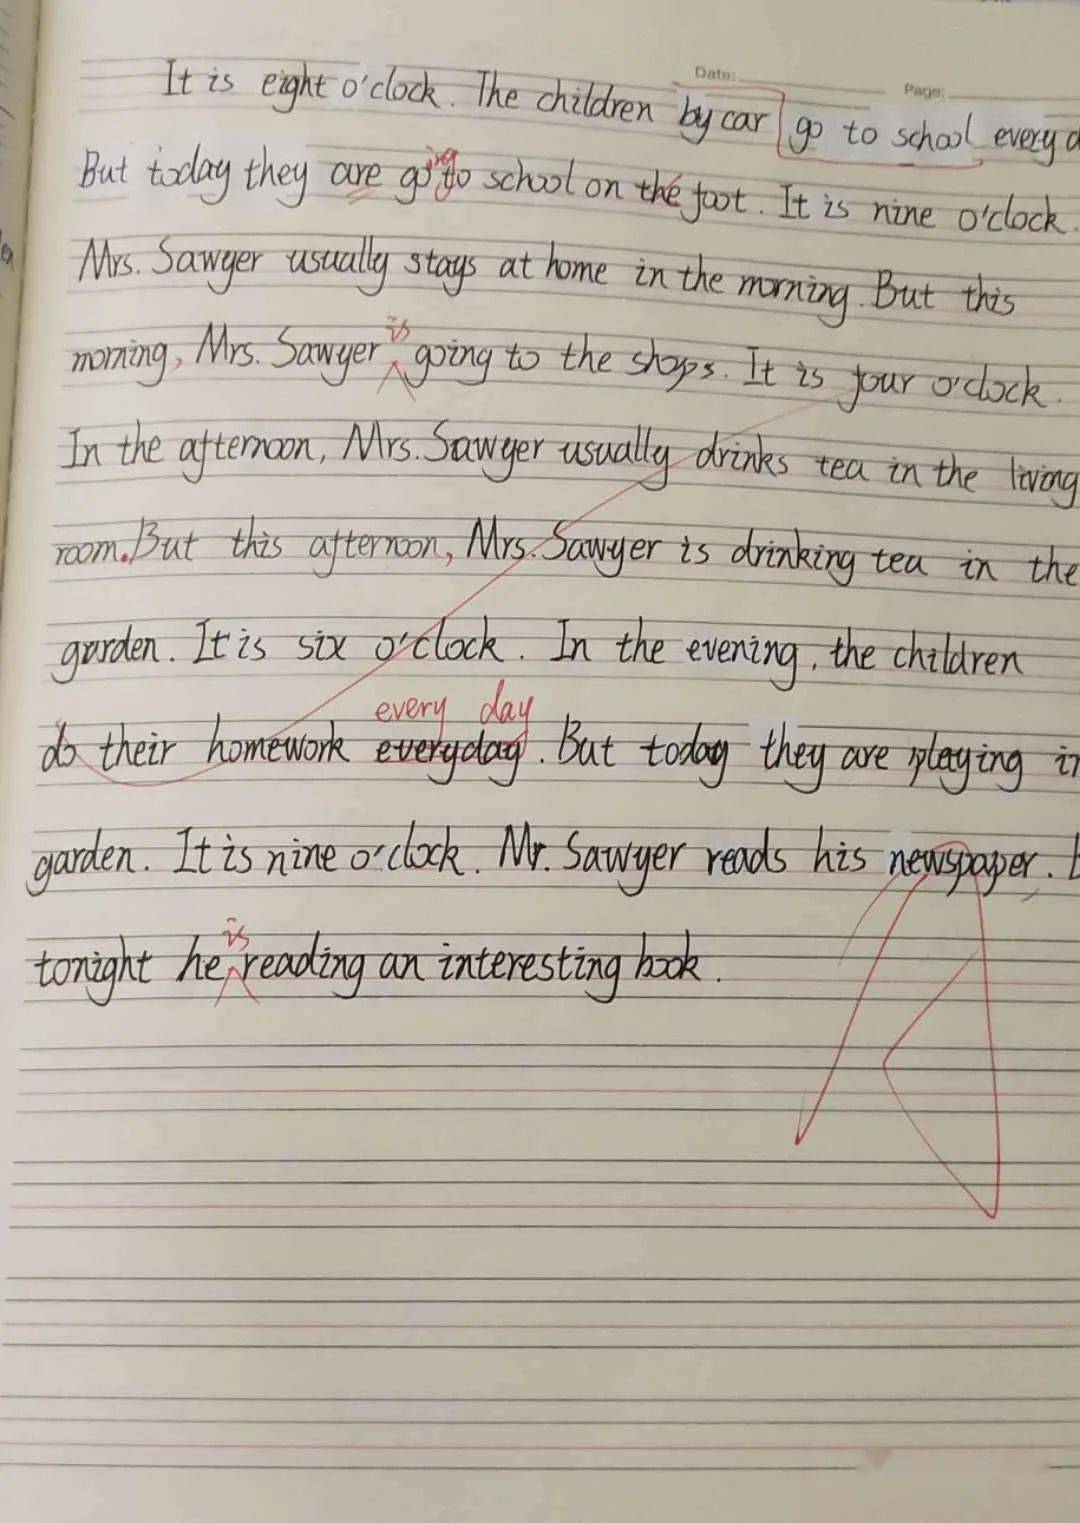 Date:
Page:
It is eight o'clock. The children by car go to school every
ing
But today they are go to school on the foot. It is nine o'clock.
Mrs. Sawyer usually stays at home in the morning. But this
is
morning, Mrs. Sawyer going to the shops. It is four o'clock.
In the afternoon, Mrs. Sawyer usually drinks tea in the living
room. But this afternoon, Mrs. Sawyer is drinking tea in the
garden. It is six o'clock. In the evening, the children
every day
do their homework everyday. But today they are playing in
garden. It is nine o'clock. Mr. Sawyer reads his newspaper.
is
tonight he reading an interesting book.